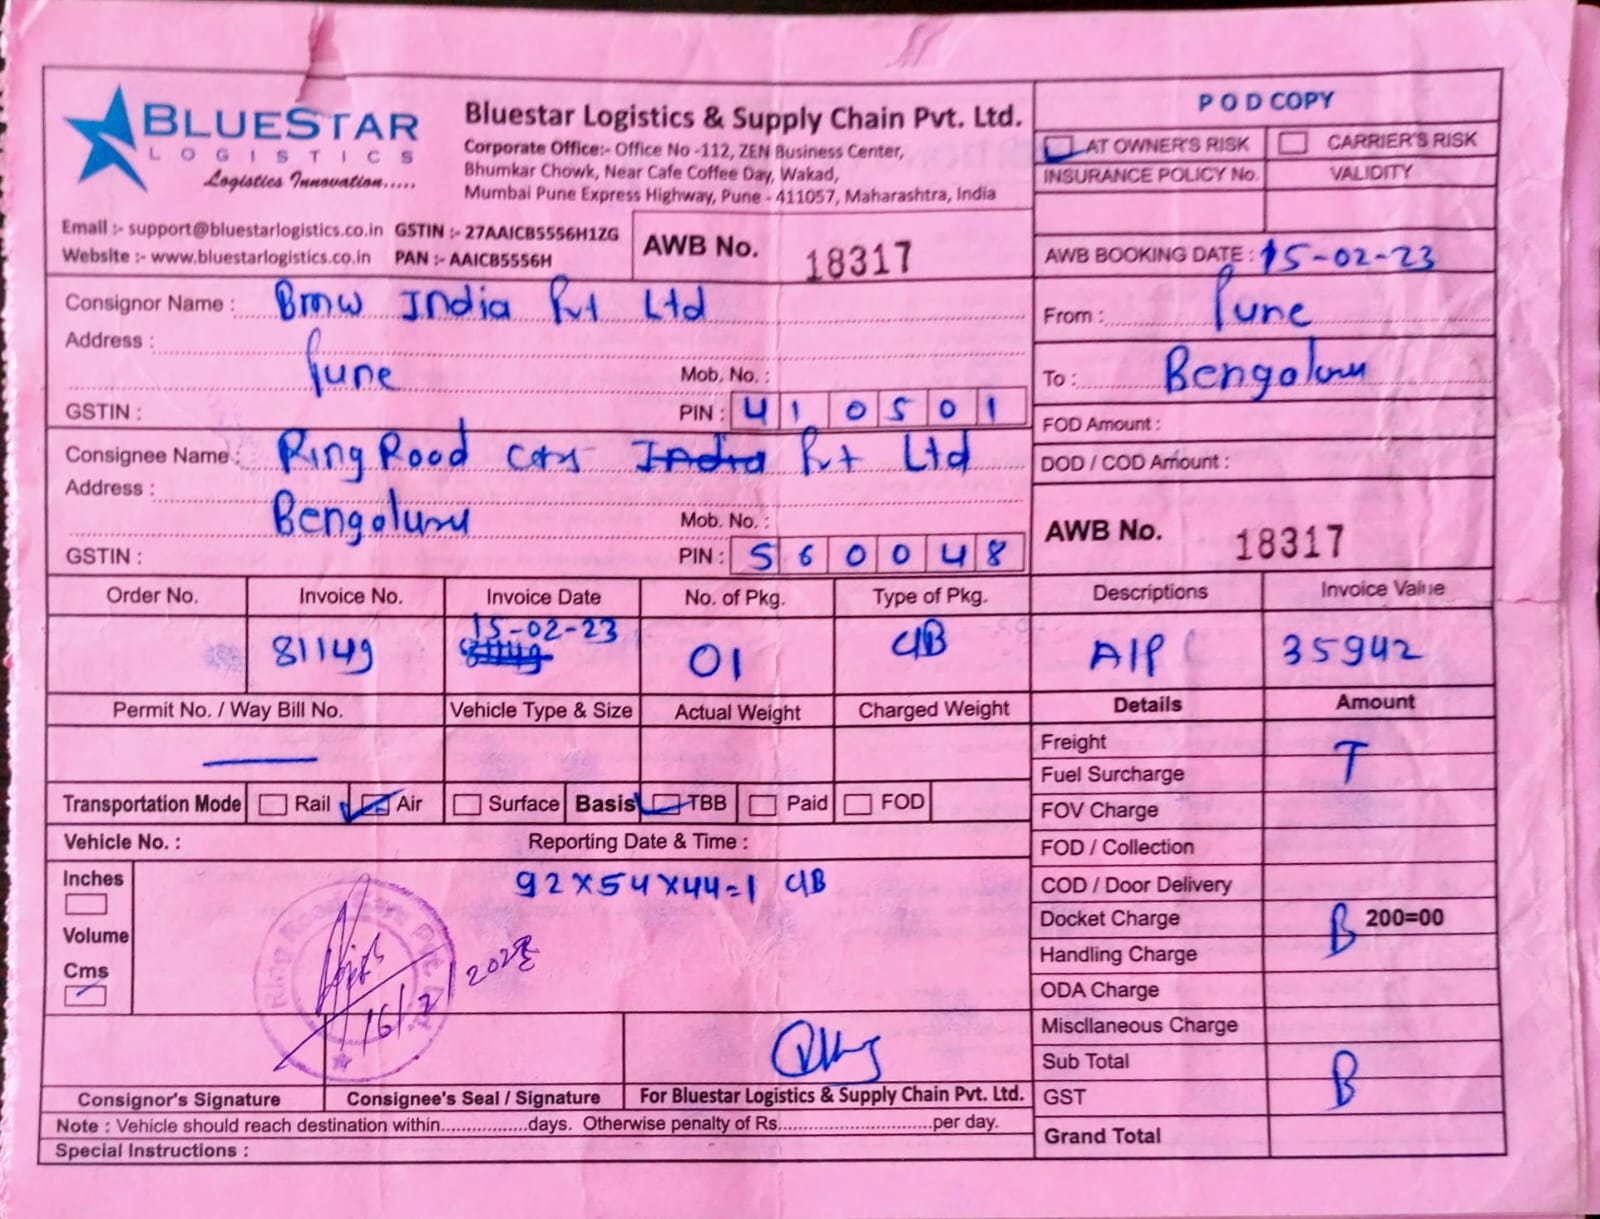 BLUESTAR
LOGISTICS
Logistics Innovation.....
Bluestar Logistics & Supply Chain Pvt. Ltd.
Corporate Office:- Office No -112, ZEN Business Center,
Bhumkar Chowk, Near Cafe Coffee Day, Wakad,
Mumbai Pune Express Highway, Pune - 411057, Maharashtra, India
Email :- support@bluestarlogistics.co.in GSTIN :- 27AAICB5556H1ZG
Website :- www.bluestarlogistics.co.in PAN :- AAICB5556H
AWB No. 18317
P O D COPY
AT OWNER'S RISK CARRIER'S RISK
INSURANCE POLICY No. VALIDITY
AWB BOOKING DATE : 15-02-23
From : Pune
To : Bengaluru
FOD Amount :
DOD / COD Amount :
AWB No. 18317
Consignor Name : Bmw India Pvt Ltd
Address :
Pune Mob. No. :
GSTIN : PIN : 410501
Consignee Name : Ring Road Cars India Pvt Ltd
Address :
Bengaluru Mob. No. :
GSTIN : PIN : 560048
Order No. Invoice No. Invoice Date No. of Pkg. Type of Pkg. Descriptions Invoice Value
81149 15-02-23 01 CIB AIP 35942
Permit No. / Way Bill No. Vehicle Type & Size Actual Weight Charged Weight
Transportation Mode Rail Air Surface Basis TBB Paid FOD
Vehicle No. : Reporting Date & Time :
Inches
Volume
Cms
92x54x44=1 CIB
Ring Road Cars Pvt. Ltd.
16/2/2023
Details Amount
Freight T
Fuel Surcharge
FOV Charge
FOD / Collection
COD / Door Delivery
Docket Charge B 200=00
Handling Charge
ODA Charge
Miscllaneous Charge
Sub Total B
GST
Grand Total
Consignor's Signature Consignee's Seal / Signature For Bluestar Logistics & Supply Chain Pvt. Ltd.
Note : Vehicle should reach destination within................days. Otherwise penalty of Rs............................per day.
Special Instructions :